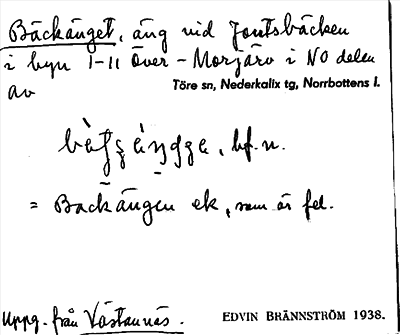 Bäckänget, äng vid Jontsbäcken
i byn 1-11 Över-Morjärv i NO delen
av Töre sn, Nederkalix tg, Norrbottens l.
bf.n.
= Backängen ek, som är fel.
Uppg. från Västannäs. EDVIN BRÄNNSTRÖM 1938.